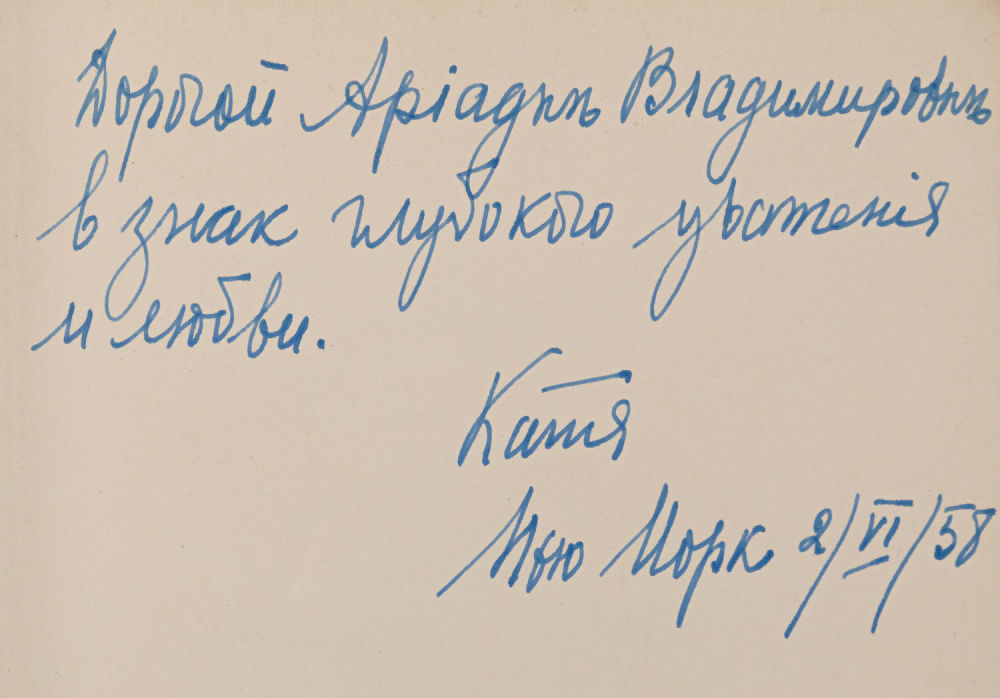 Дорогой Аріаднѣ Владимировнѣ
в знак глубокого уваженія
и любви.
Катя
Нью Иорк 2/VI/58